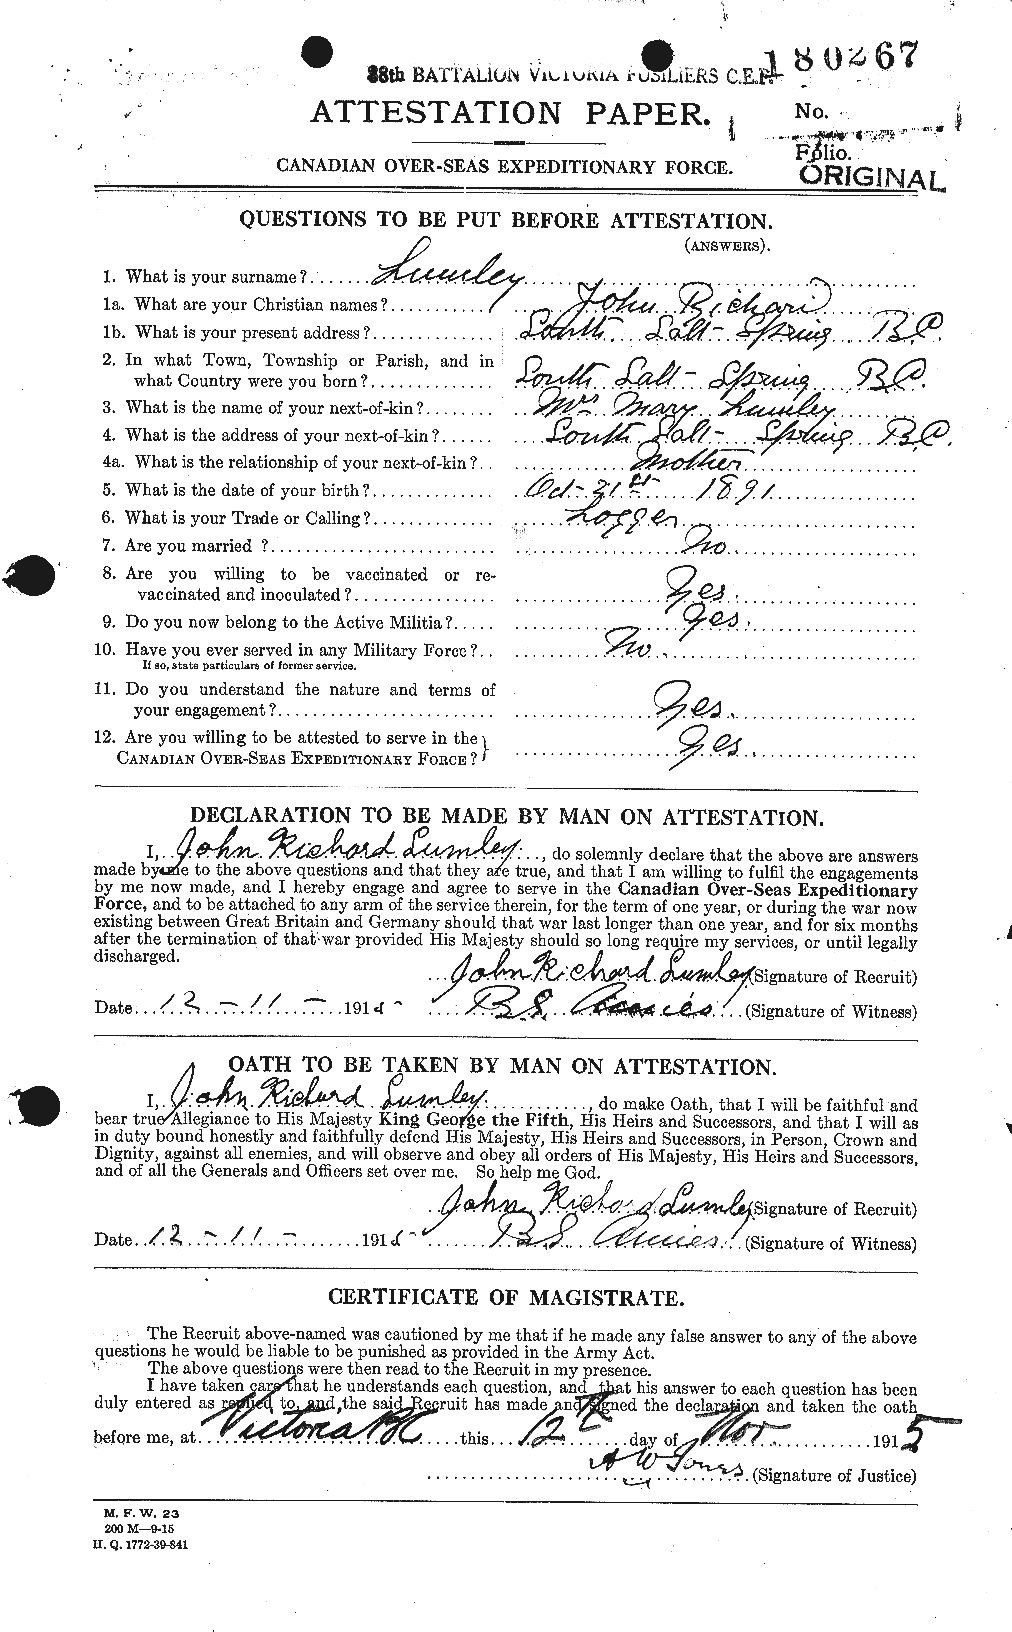 180267
88th BATTALION VICTORIA FUSILIERS C.E.F.
ATTESTATION PAPER.
No.
Folio.
CANADIAN OVER-SEAS EXPEDITIONARY FORCE.
ORIGINAL
QUESTIONS TO BE PUT BEFORE ATTESTATION.
(ANSWERS).
1. What is your surname? Lumley
1a. What are your Christian names? John Richard
1b. What is your present address? South Salt-Spring B.C.
2. In what Town, Township or Parish, and in
what Country were you born? South Salt-Spring B.C.
3. What is the name of your next-of-kin? Mrs Mary Lumley
4. What is the address of your next-of-kin? South Salt-Spring B.C.
4a. What is the relationship of your next-of-kin? Mother
5. What is the date of your birth? Oct-21st 1891
6. What is your Trade or Calling? Logger
7. Are you married ? No
8. Are you willing to be vaccinated or re-
vaccinated and inoculated? Yes.
9. Do you now belong to the Active Militia? Yes.
10. Have you ever served in any Military Force? No.
If so, state particulars of former service.
11. Do you understand the nature and terms of
your engagement? Yes.
12. Are you willing to be attested to serve in the
CANADIAN OVER-SEAS EXPEDITIONARY FORCE? Yes
DECLARATION TO BE MADE BY MAN ON ATTESTATION.
I, John Richard Lumley, do solemnly declare that the above are answers
made by me to the above questions and that they are true, and that I am willing to fulfil the engagements
by me now made, and I hereby engage and agree to serve in the Canadian Over-Seas Expeditionary
Force, and to be attached to any arm of the service therein, for the term of one year, or during the war now
existing between Great Britain and Germany should that war last longer than one year, and for six months
after the termination of that war provided His Majesty should so long require my services, or until legally
discharged.
John Richard Lumley (Signature of Recruit)
Date 12-11-1915 B.S. (Signature of Witness)
OATH TO BE TAKEN BY MAN ON ATTESTATION.
I, John Richard Lumley, do make Oath, that I will be faithful and
bear true Allegiance to His Majesty King George the Fifth, His Heirs and Successors, and that I will as
in duty bound honestly and faithfully defend His Majesty, His Heirs and Successors, in Person, Crown and
Dignity, against all enemies, and will observe and obey all orders of His Majesty, His Heirs and Successors,
and of all the Generals and Officers set over me. So help me God.
John Richard Lumley (Signature of Recruit)
Date 12-11-1915 B.S. (Signature of Witness)
CERTIFICATE OF MAGISTRATE.
The Recruit above-named was cautioned by me that if he made any false answer to any of the above
questions he would be liable to be punished as provided in the Army Act.
The above questions were then read to the Recruit in my presence.
I have taken care that he understands each question, and that his answer to each question has been
duly entered as replied to, and the said Recruit has made and signed the declaration and taken the oath
before me, at Victoria BC this 12th day of Nov 1915
A W Jones (Signature of Justice)
M. F. W. 23
200 M—9-15
H. Q. 1772-39-841